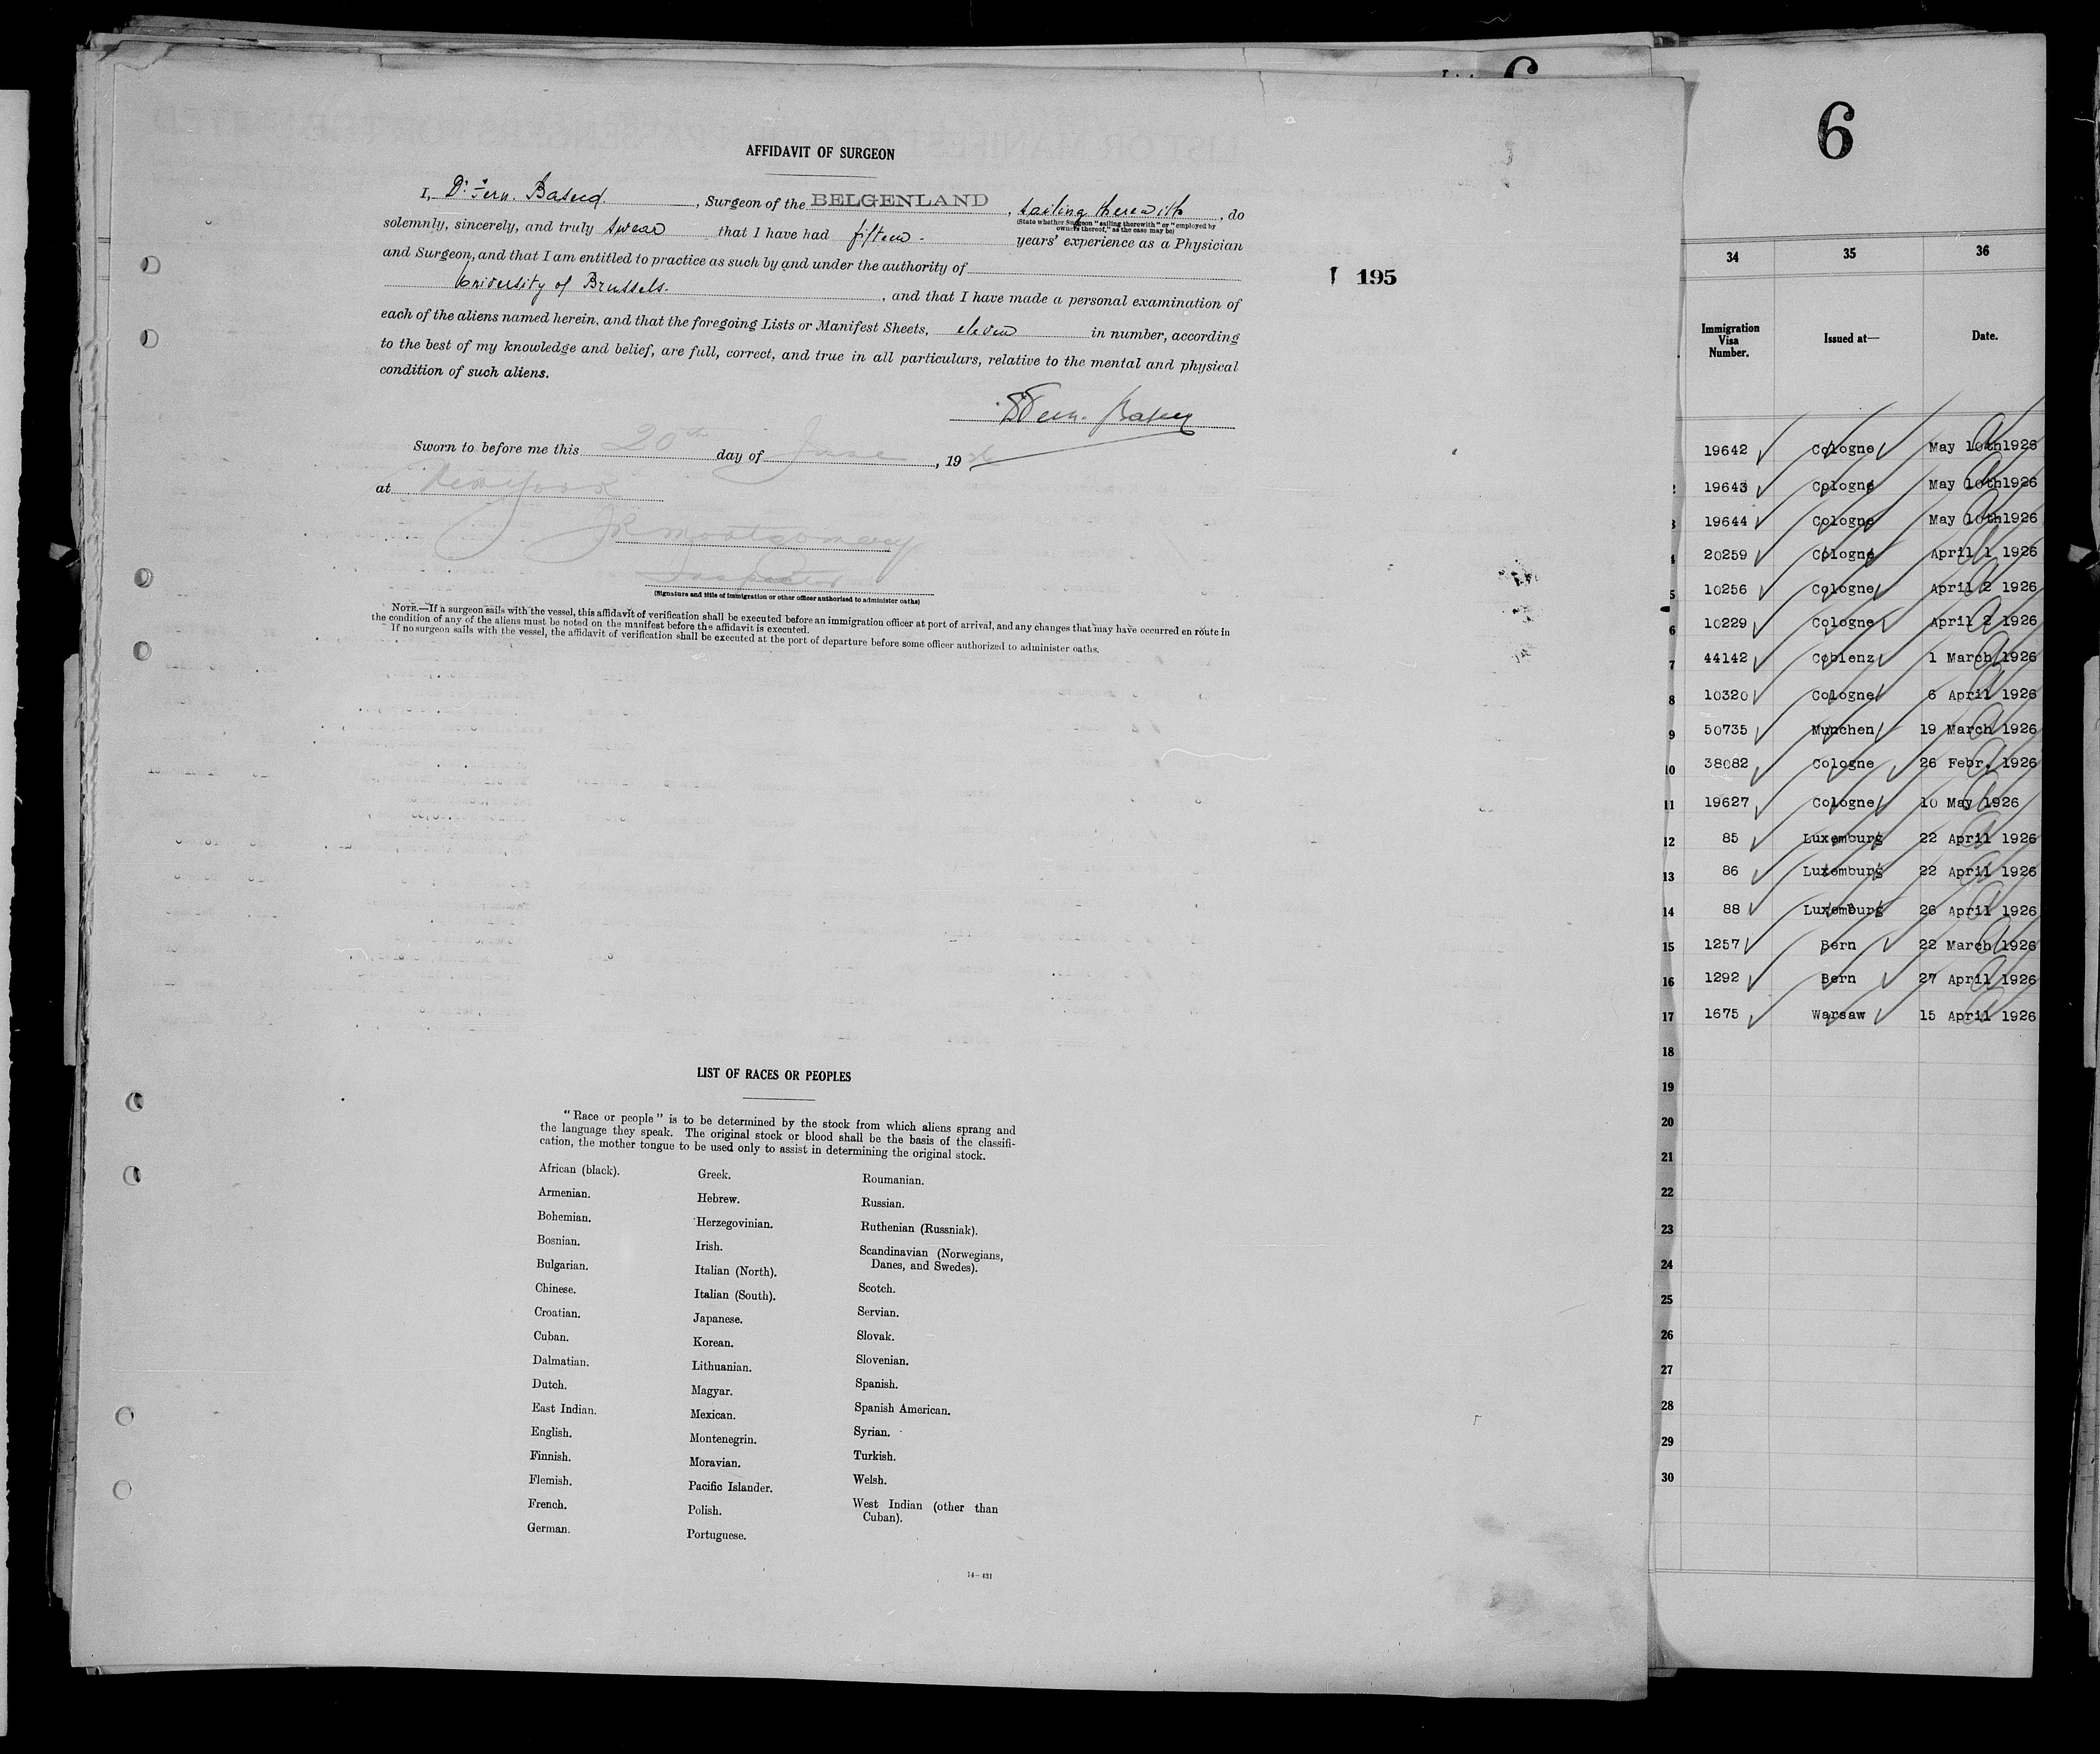 AFFIDAVIT OF SURGEON
I, Dr. Fern. , Surgeon of the BELGENLAND , sailing therewith , do
(State whether Surgeon "sailing therewith" or "employed by
owners thereof," as the case may be)
solemnly, sincerely, and truly swear that I have had fifteen years' experience as a Physician
and Surgeon, and that I am entitled to practice as such by and under the authority of
University of Brussels. , and that I have made a personal examination of
each of the aliens named herein, and that the foregoing Lists or Manifest Sheets, eleven in number, according
to the best of my knowledge and belief, are full, correct, and true in all particulars, relative to the mental and physical
condition of such aliens.
Sworn to before me this 20th day of June , 1926
at New York
JR Montgomery
Inspector
(Signature and title of immigration or other officer authorized to administer oaths)
NOTE.—If a surgeon sails with the vessel, this affidavit of verification shall be executed before an immigration officer at port of arrival, and any changes that may have occurred en route in
the condition of any of the aliens must be noted on the manifest before the affidavit is executed.
If no surgeon sails with the vessel, the affidavit of verification shall be executed at the port of departure before some officer authorized to administer oaths.
195
LIST OF RACES OR PEOPLES
"Race or people" is to be determined by the stock from which aliens sprang and
the language they speak. The original stock or blood shall be the basis of the classifi-
cation, the mother tongue to be used only to assist in determining the original stock.
African (black).
Armenian.
Bohemian.
Bosnian.
Bulgarian.
Chinese.
Croatian.
Cuban.
Dalmatian.
Dutch.
East Indian.
English.
Finnish.
Flemish.
French.
German.
Greek.
Hebrew.
Herzegovinian.
Irish.
Italian (North).
Italian (South).
Japanese.
Korean.
Lithuanian.
Magyar.
Mexican.
Montenegrin.
Moravian.
Pacific Islander.
Polish.
Portuguese.
Roumanian.
Russian.
Ruthenian (Russniak).
Scandinavian (Norwegians,
Danes, and Swedes).
Scotch.
Servian.
Slovak.
Slovenian.
Spanish.
Spanish American.
Syrian.
Turkish.
Welsh.
West Indian (other than
Cuban).
14—431
6
34 35 36
Immigration
Visa
Number.
Issued at—
Date.
19642 Cologne May 10th1926
2 19643 Cologne May 10th1926
3 19644 Cologne May 10th1926
4 20259 Cologne April 1 1926
5 10256 Cologne April 2 1926
6 10229 Cologne April 2 1926
7 44142 Coblenz 1 March 1926
8 10320 Cologne 6 April 1926
9 50735 Munchen 19 March 1926
10 38082 Cologne 26 Febr. 1926
11 19627 Cologne 10 May 1926
12 85 Luxemburg 22 April 1926
13 86 Luxemburg 22 April 1926
14 88 Luxemburg 26 April 1926
15 1257 Bern 22 March 1926
16 1292 Bern 27 April 1926
17 1675 Warsaw 15 April 1926
18
19
20
21
22
23
24
25
26
27
28
29
30